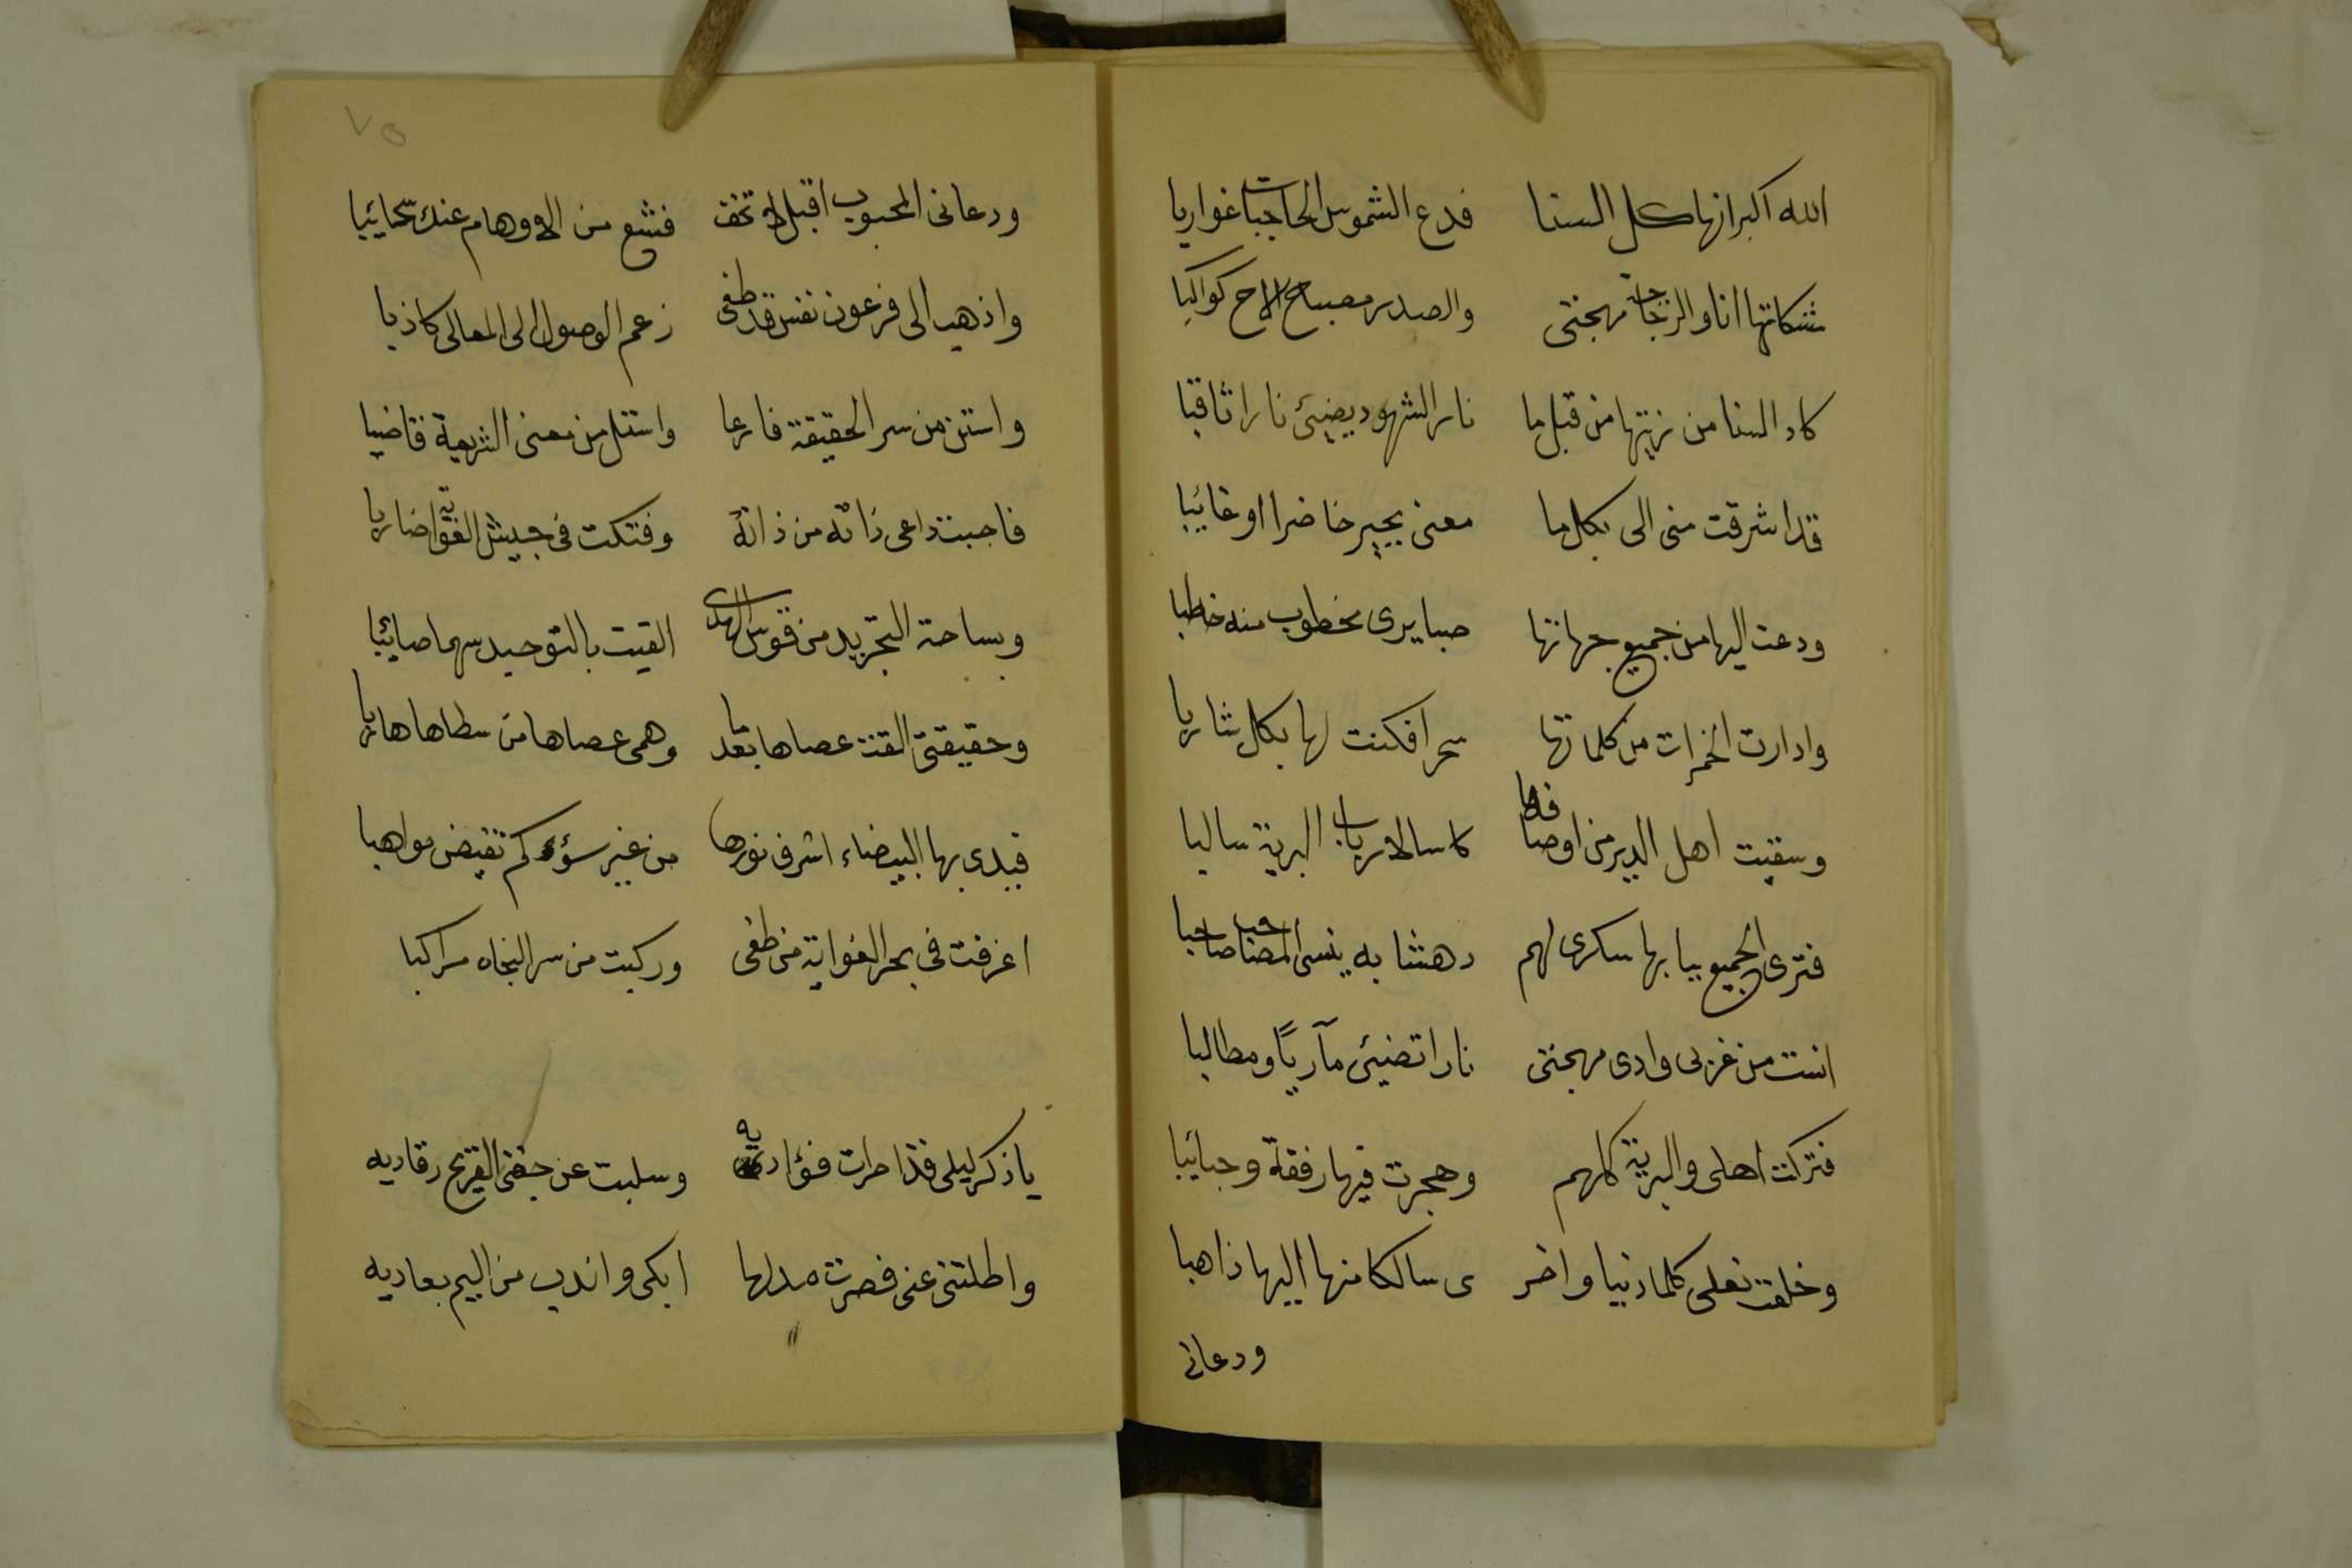 الله اكبر انها كل السنا فدع الشموس الحاجبات غواربا
مشكاتها انا والزجاجة مهجتى والصدر مصباح الاح كواكبا
كاد السنا من زيتها من قبل ما نار الشهود يضيئ نارا ثاقبا
قد اشرقت منى الى بكل ما معنى يجير حاضرا او غائبا
ودعت اليها من جميع جهاتها صبا يرى مخطوب منه خاطبا
وادارت الخمرات من كلماتها سحرا فكنت لها بكل شاربا
وسقيت اهل الدير من اوصافها كاسا لارباب البرية سالبا
فترى الجميع ببابها سكرى لهم دهشا به ينسى المصاحب صاحبا
انست من غربى وادى مهجتى نارا تضيئ مآربًا ومطالبا
فتركت اهلى والبرية كلهم وهجرت فيها رفقة وحبائبا
وخلعت نعلى كلما دنيا واخر ى سالكا منها اليها ذاهبا
ودعانى
٧٥
ودعانى المحبوب اقبل لا تخف فشع من الاوهام عنك سحائبا
واذهب الى فرعون نفس قد طغى زعم الوصول الى المعالى كاذبا
واستن من سر الحقيقة فارعا واستل من معنى الشريعة قاضبا
فاجبت داعى ذاته من ذاته وفتكت فى جيش الغواية ضاربا
وبساحة التجريد من قوس الهدى القيت بالتوحيد سهما صائبا
وحقيقتى القت عصاها بعد ما وهمى عصاها من سطاها هاربا
فبدى بها البيضاء اشرف نورها من غير سؤ كم تفيض مواهبا
اغرقت فى بحر الغواية من طغى وركبت من سر النجاه مراكبا
يا ذكر ليلى قد احرات فؤاديه وسلبت عن جفنى القريح رقاديه
واطلتنى عنى فصرت مدلها ابكى واندب من اليم بعاديه